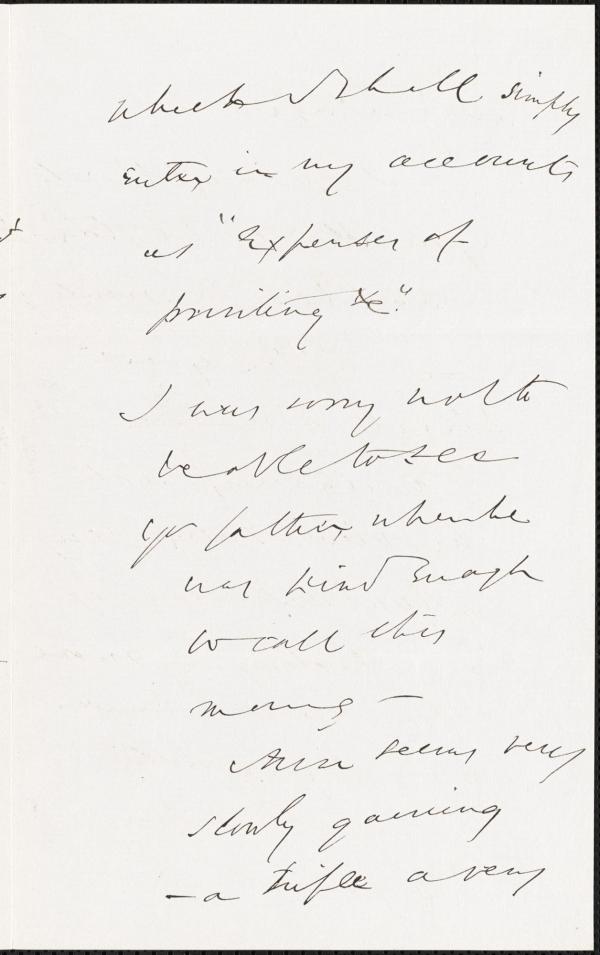 which I shall simply
enter in my accounts
as "Expenses of
printing &c".
I was sorry not to
be able to see
yr father when he
was kind enough
to call this
morning —
Ann seems very
slowly gaining
— a trifle every